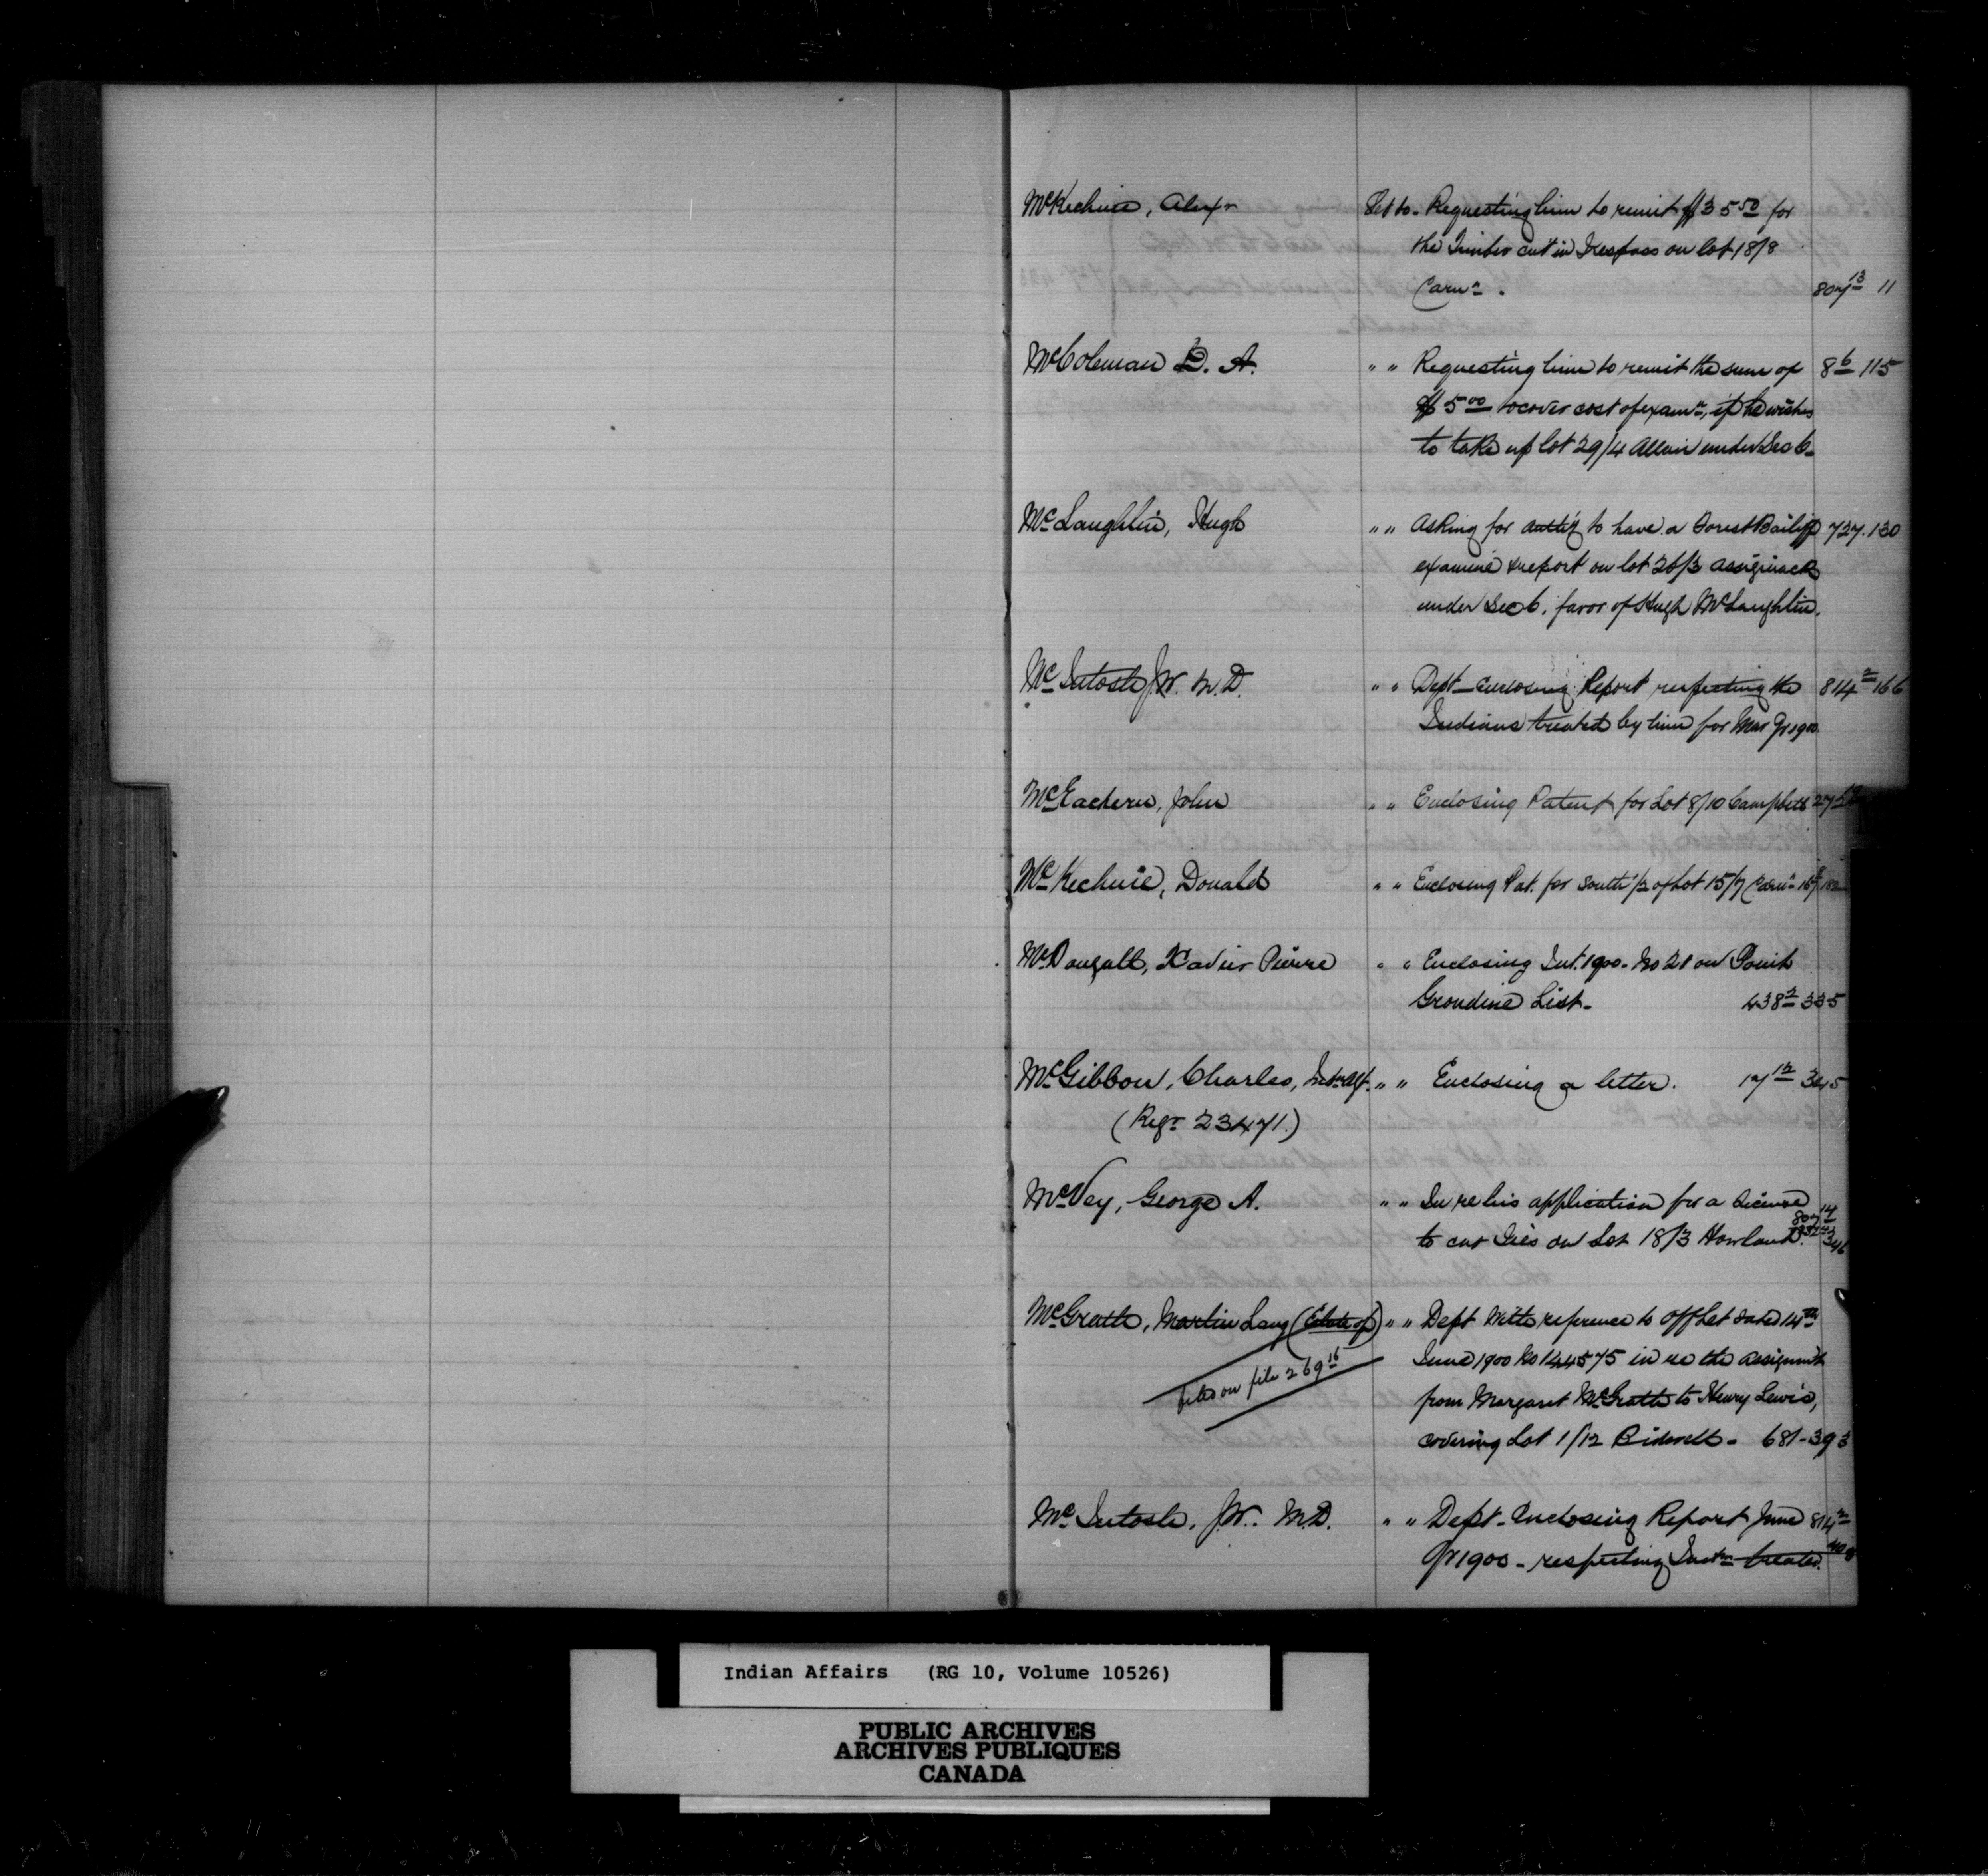 McKechnie, Alexr Let to - Requesting him to remit $35 50 for
the Timber cut in Trespass on lot 18/8
Carnn. 807 13 11
McColeman D. A. " " Requesting him to remit the sum of 8 6 115
$5 00 to cover cost of examn, if he wishes
to take up lot 29/4 Allan under Sec 6-
McLaughlin, Hugh " " Asking for to have a Forest Bailiff 727.130
examine & report on lot 26/3 Assiginack
under Sec 6, favor of Hugh McLaughlin.
McIntosh J.W. M.D. " " Dept - Enclosing Report respecting the 814 2 166
Indians treated by him for Mar Qr 1900
McEachern, John " " Enclosing Patent for Lot 8/10 Campbell
McKechnie, Donald " " Enclosing Pat. for South 1/2 of Lot 15/7 Carnn
McDougall, Xavier Pierre " " Enclosing Int. 1900 - No 21 on Point
Grondine List - 438 2 335
McGibbon, Charles, " " Enclosing a letter. 17 12 345
(Regr 23471.)
McVey, George A. " " In re his application for a License
to cut Ties on Lot 18/3 Howland. 807 14 346
McGrath, Martin Lang (Estate of) " " Dept With reference to off Let dated 14th
June 1900 No 144575 in re the assignmt
files on file 269 16
from Margaret McGrath to Henry Lewis,
covering Lot 1/12 Bidwell - 681-393
McIntosh, J.W. M.D. " " Dept - Enclosing Report June 814 2
Qr 1900 - respecting Indns treated.
Indian Affairs (RG 10, Volume 10526)
PUBLIC ARCHIVES
ARCHIVES PUBLIQUES
CANADA